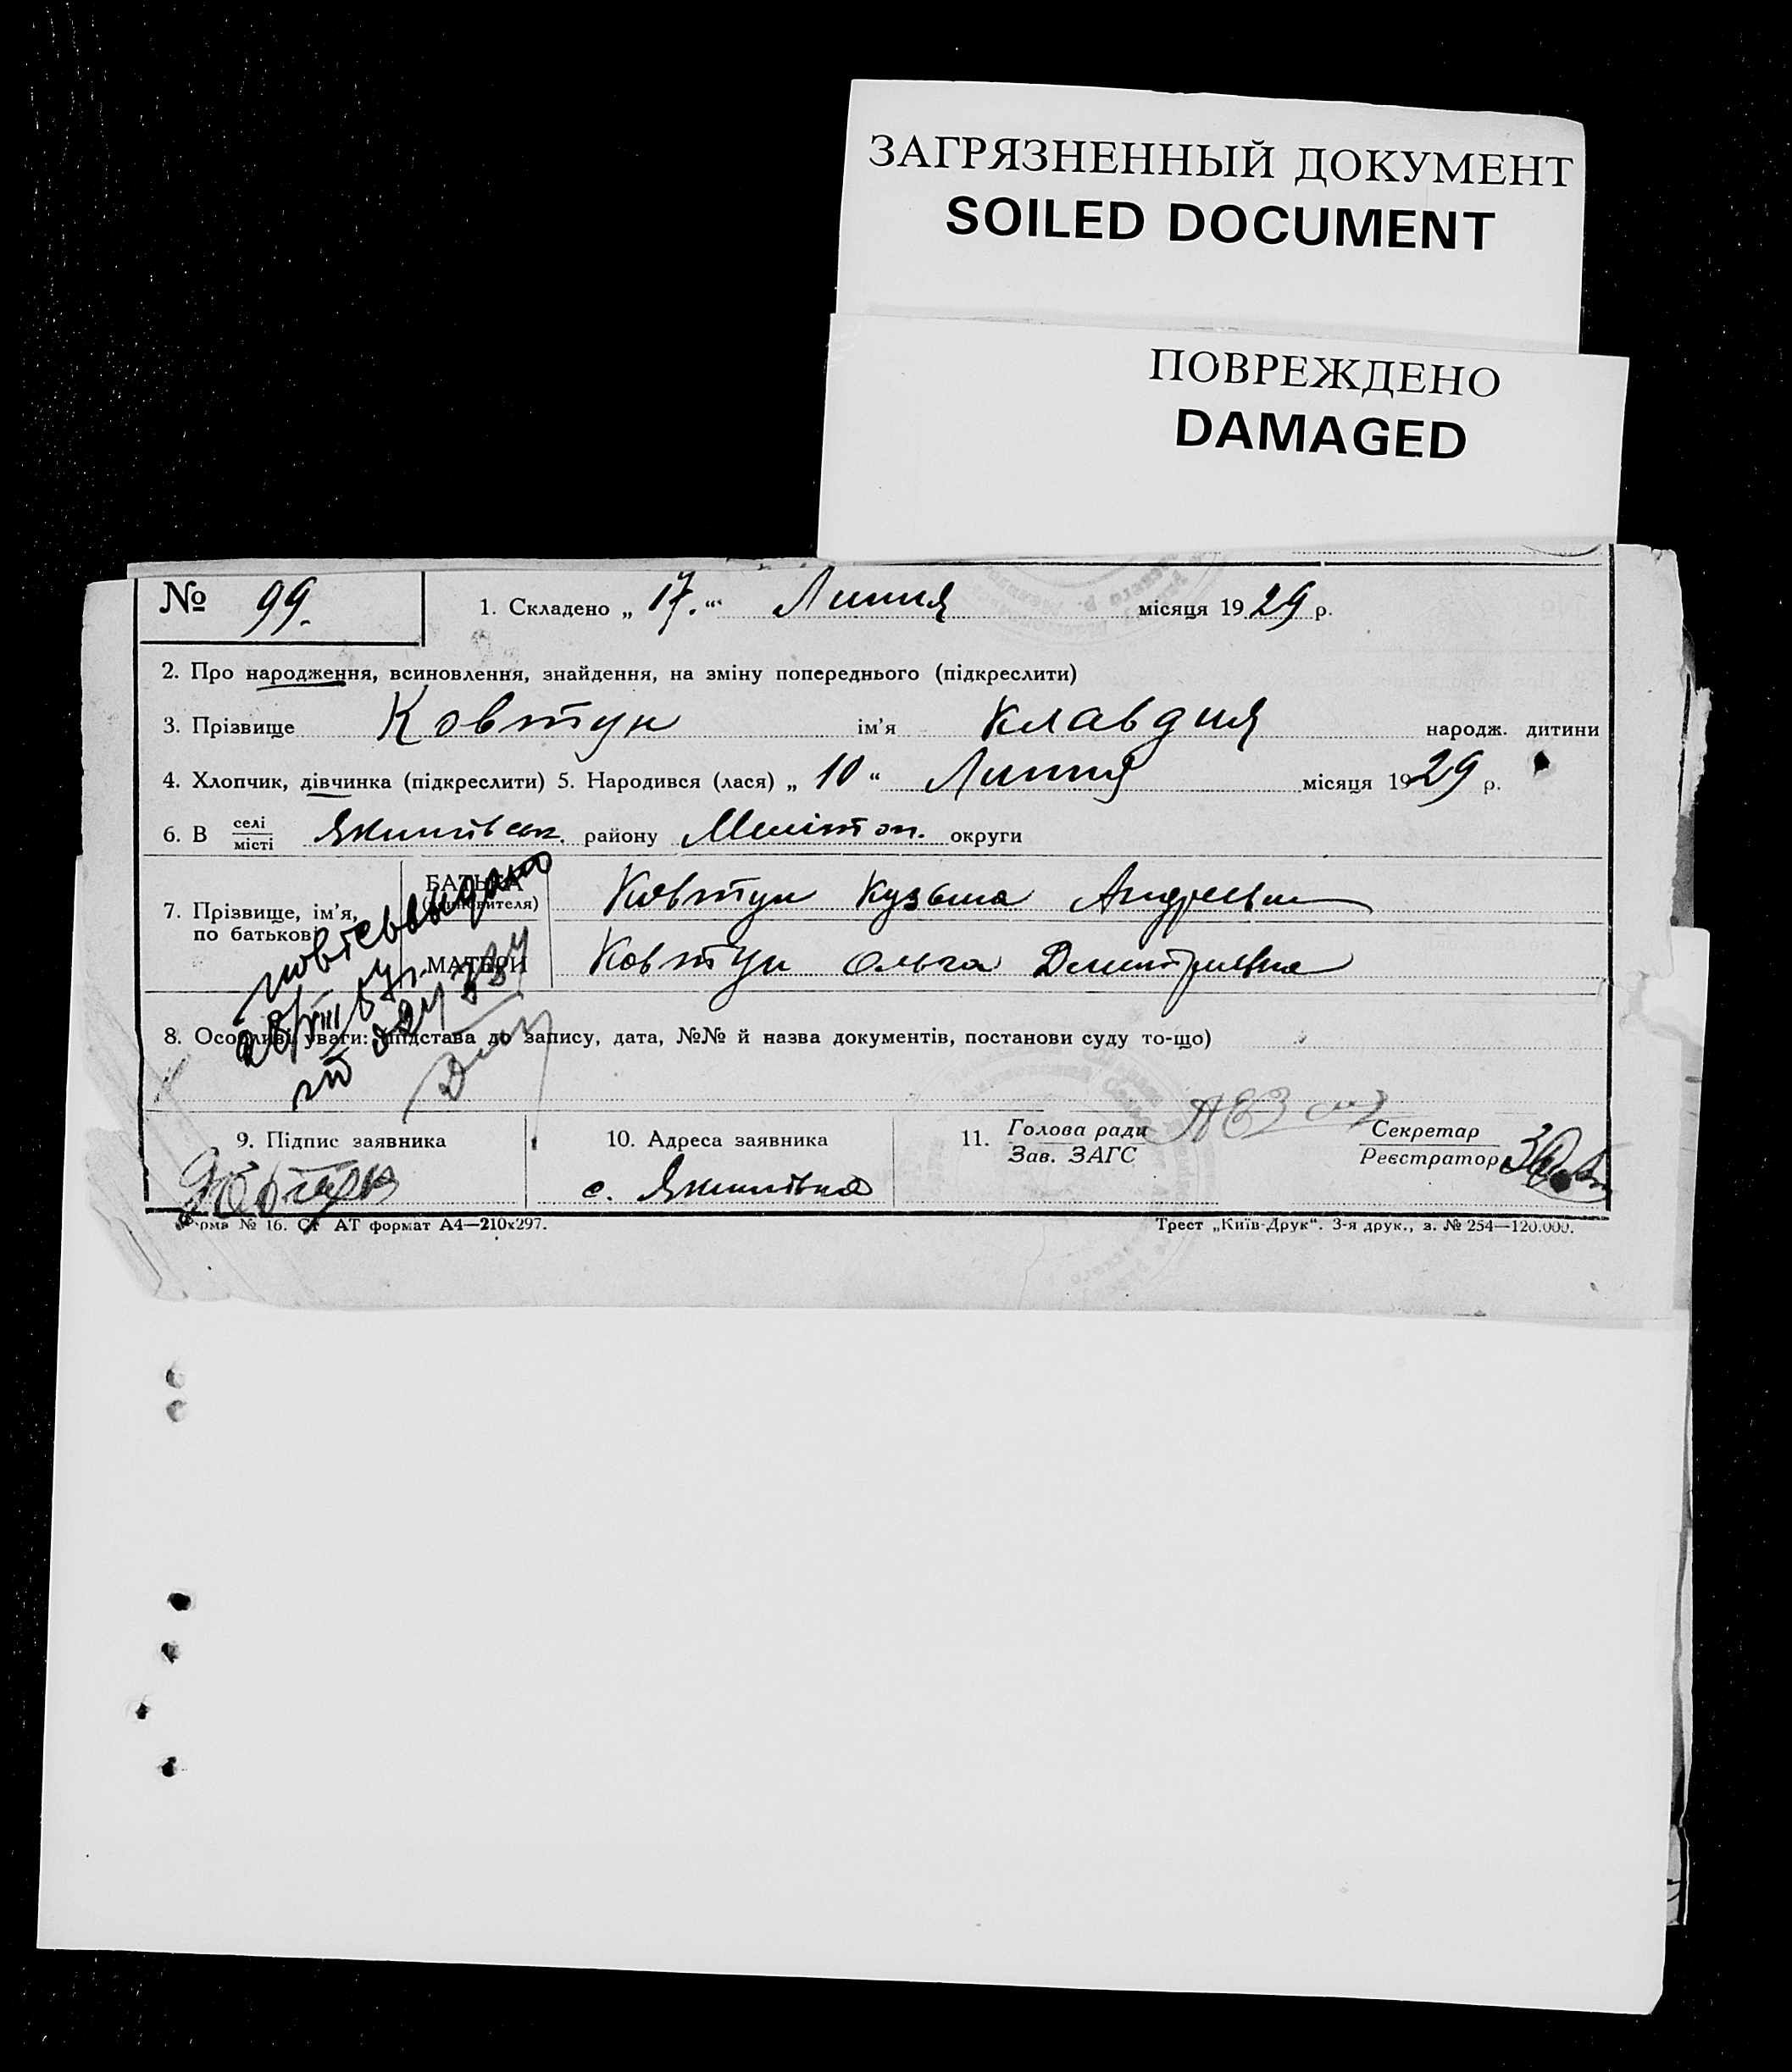 ЗАГРЯЗНЕННЫЙ ДОКУМЕНТ
SOILED DOCUMENT
ПОВРЕЖДЕНО
DAMAGED
№ 99.
1. Складено „ 17. “ Липня місяця 1929 р.
2. Про народження, всиновлення, знайдення, на зміну попереднього (підкреслити)
3. Прізвище Ковтун ім’я Клавдия народж. дитини
4. Хлопчик, дівчинка (підкреслити) 5. Народився (лася) „ 10 “ Липня місяця 1929 р.
6. В селі місті Якимівськ. району Меліт оп. округи
7. Прізвище, ім’я, по батькові
БАТЬКА Ковтун Кузьма Андреевич
МАТЕРИ Ковтун Ольга Дмитриевна
8. Особливі уваги: (підстава до запису, дата, №№ й назва документів, постанови суду то-що)
9. Підпис заявника
10. Адреса заявника
с. Якимівка
11. Голова ради
Зав. ЗАГС
Секретар
Реєстратор
Форма № 16. Ст АТ формат А4—210х297.
Трест „Київ-Друк“. 3-я друк., з. № 254—120.000.